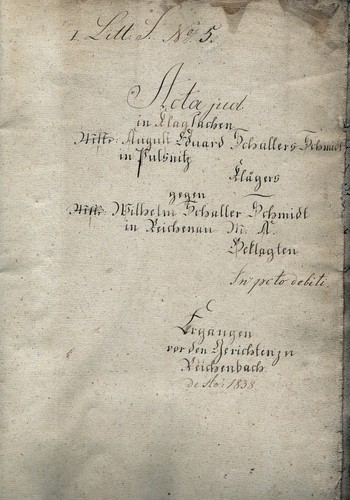 I. Litt. S. No. 5.
Acta jud.
in Klagsachen
Mstr. August Eduard Schallers Schmidt
in Pulsnitz
Klägers
gegen
Mstr. Wilhelm Schaller Schmidt
in Reichenau M. A.
Beklagten
In pcto debiti
Ergangen
vor den Gerichten zu
Reichenbach
de Ao: 1838